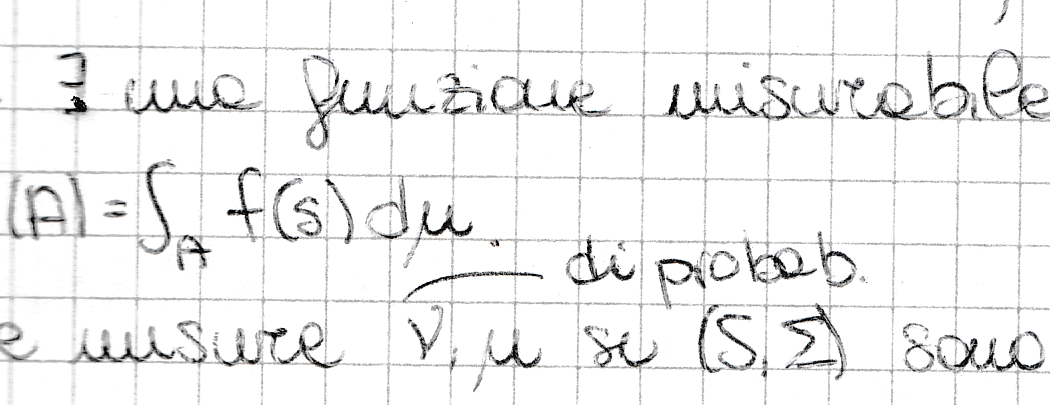 ∃ una funzione misurabile
(A) = ∫_A f(s) dμ.
di probab.
e misure ν, μ su (S, Σ) sono